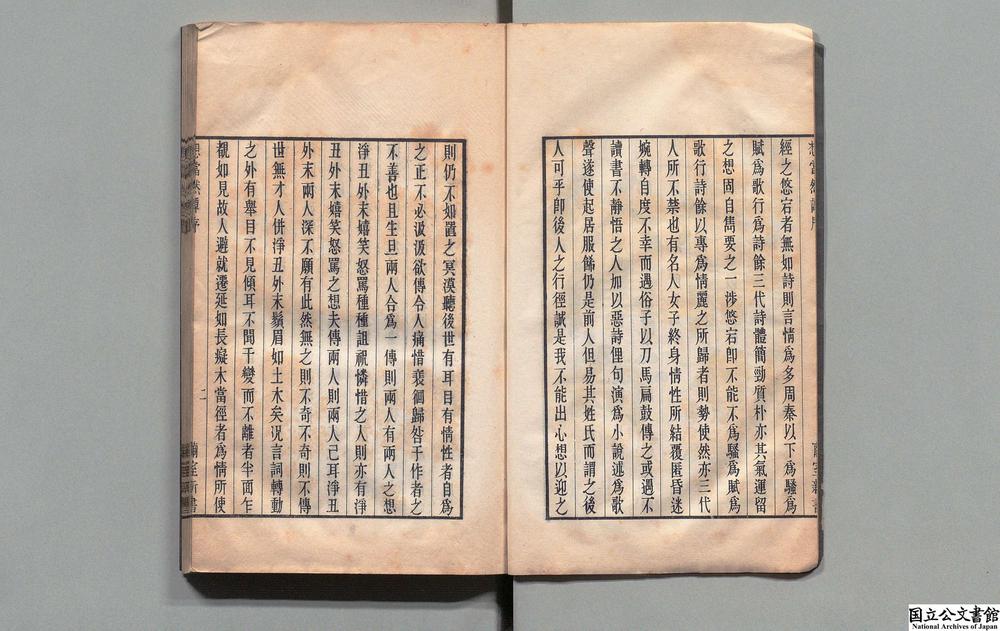 經之悠宕者無如詩則言情爲多周秦以下爲騷爲
賦爲歌行爲詩餘三代詩體簡勁質朴亦其氣運留
之想固自雋要之一涉悠宕卽不能不爲騷爲賦爲
歌行詩餘以專爲情麗之所歸者則勢使然亦三代
人所不禁也有名人女子終身情性所結覆匿昏迷
婉轉自度不幸而遇俗子以刀馬扁鼓傳之或遇不
讀書不靜悟之人加以惡詩俚句演爲小說述爲歌
聲遂使起居服飾仍是前人但易其姓氏而謂之後
人可乎卽後人之行徑誠是我不能出心想以迎之
則仍不如置之冥漠聽後世有耳目有情性者自爲
之正不必汲汲欲傳令人痛惜裵徊歸咎于作者之
不善也且生旦兩人合爲一傳則兩人有兩人之想
淨丑外末嬉笑怒罵種種詛祝憐惜之人則亦有淨
丑外末嬉笑怒罵之想夫傳兩人則兩人已耳淨丑
外末兩人深不願有此然無之則不奇不奇則不傳
世無才人併淨丑外末鬚眉如土木矣况言詞轉動
之外有舉目不見傾耳不聞千變而不離者半面乍
覩如見故人避就遷延如長癡木當徑者爲情所使
想當然譚序
二
国立公文書館
National Archives of Japan